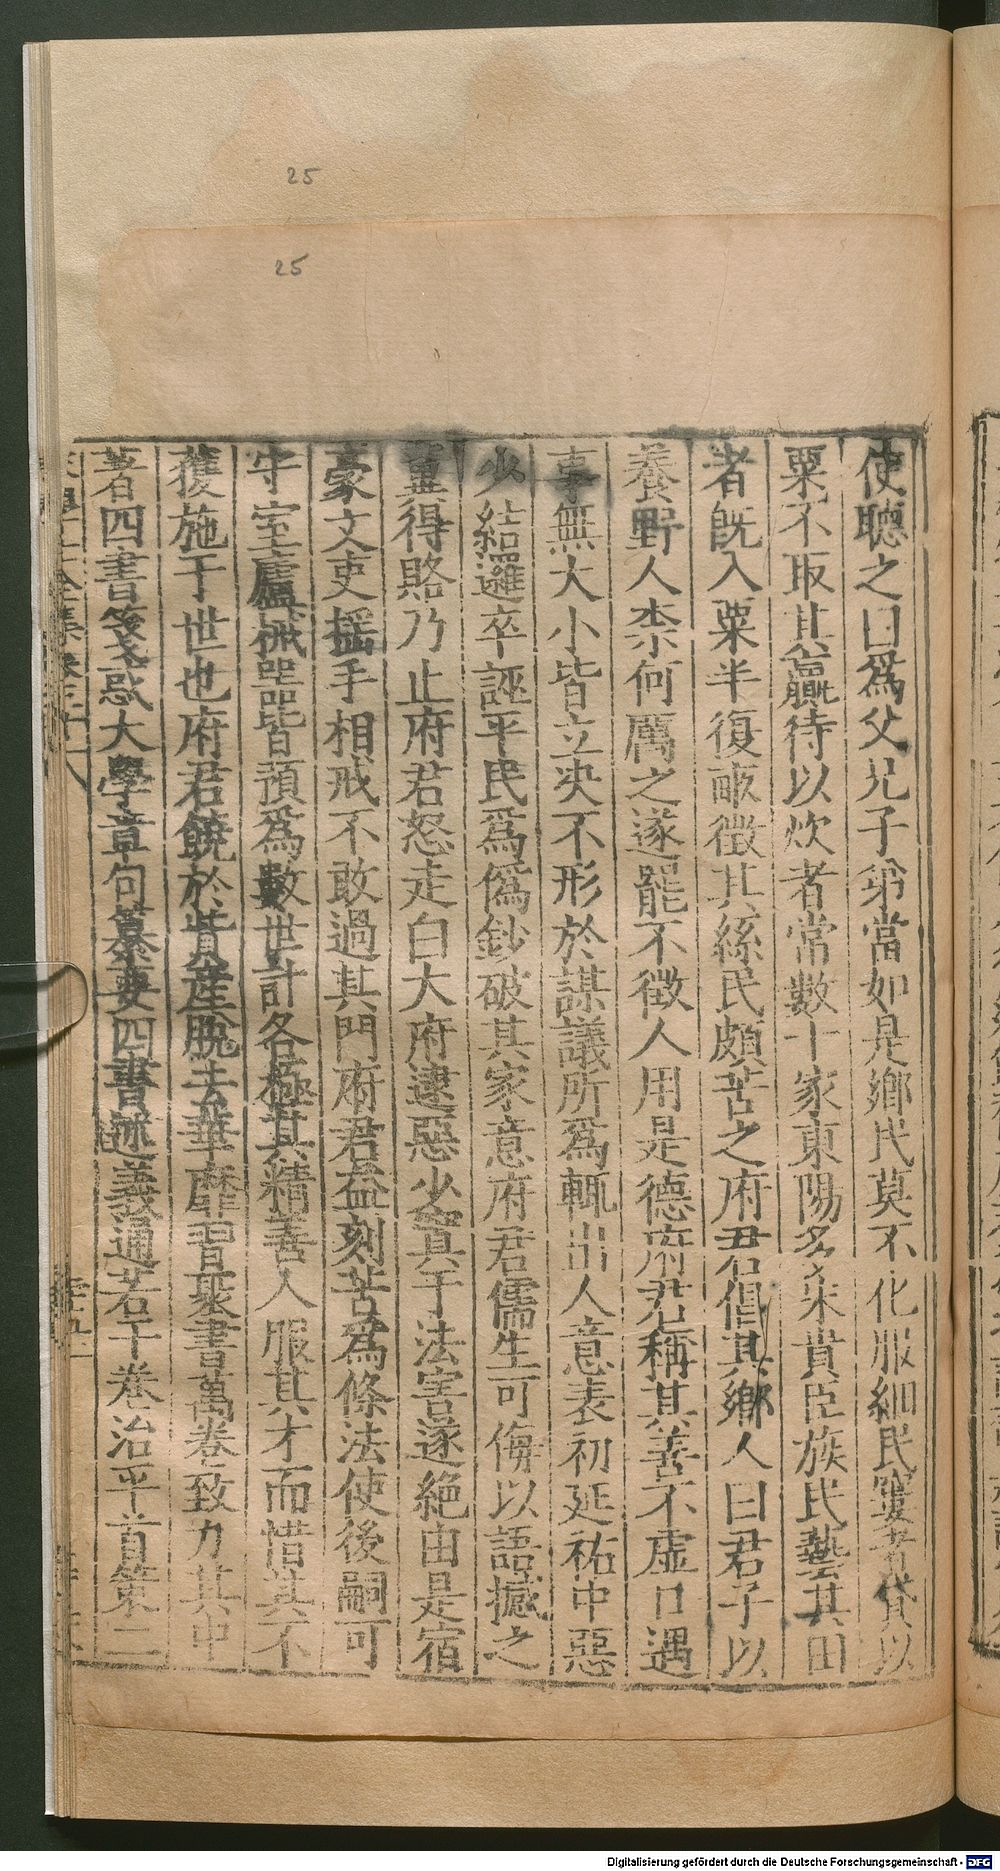 25
25
使聽之曰爲父兄子弟當如是鄉民莫不化服細民窶者貸以
粟不取其贏待以炊者常數十家東陽多宋貴臣族民藝其田
者旣入粟半復畝徵其絲民頗苦之府君倡其鄉人曰君子以
養野人柰何厲之遂罷不徵人用是德府君稱其善不虛口遇
事無大小皆立决不形於謀議所爲輒出人意表初延祐中惡
少結邏卒誣平民爲僞鈔破其家意府君儒生可侮以語撼之
冀得賂乃止府君怒走白大府逮惡少寘于法害遂絕由是宿
豪文吏搖手相戒不敢過其門府君益刻苦爲條法使後嗣可
守室廬械器皆預爲數世計各極其精善人服其才而惜其不
獲施于世也府君饒於貲産脫去華靡習聚書萬卷致力其中
著四書箋惑大學章句纂要四書述義通若干卷治平首策二
Digitalisierung gefördert durch die Deutsche Forschungsgemeinschaft - DFG